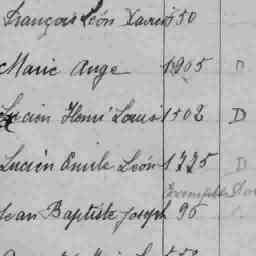 François Léon Xavier 550
Marie Ange 1905 D
Lucien Henri Louis 1502 D
Lucien Emile Léon 1725 D
Jean Baptiste Joseph 95